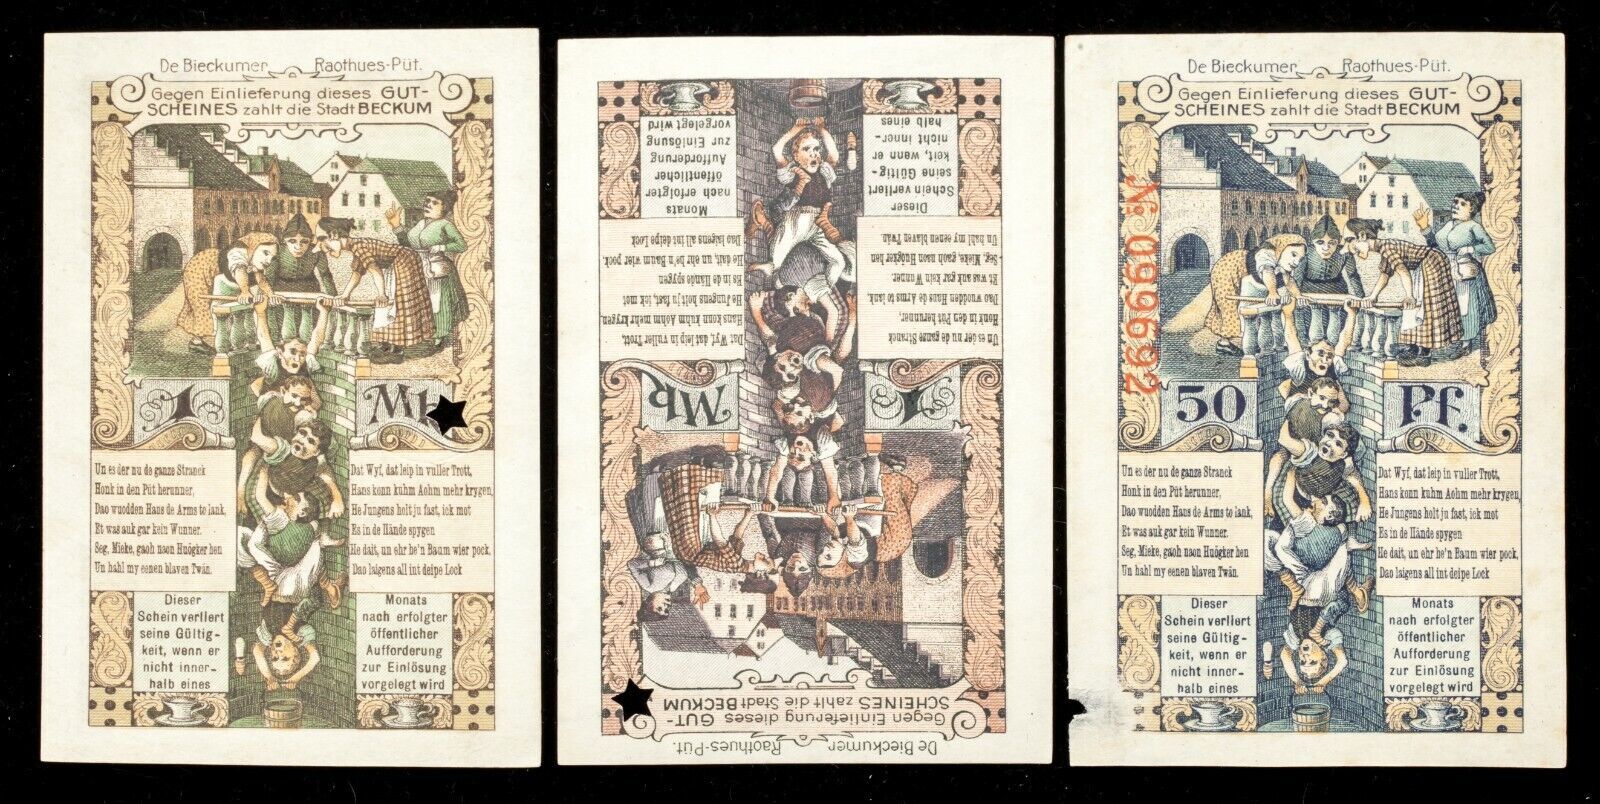 De Bieckumer Raothues-Püt.
Gegen Einlieferung dieses GUT-
SCHEINES zahlt die Stadt BECKUM
1 Mk
Un es der nu de ganze Stranck
Honk in den Püt herunner,
Dao wuodden Hans de Arms to lank,
Et was auk gar kein Wunner.
Seg, Mieke, gaoh naon Huögker hen
Un hahl my eenen blaven Twän.
Dat Wyf, dat leip in vuller Trott,
Hans konn kuhm Aohm mehr krygen,
He Jungens holt ju fast, iek mot
Es in de Hände spygen
He dait, un ehr he'n Baum wier pock,
Dao laigens all int deipe Lock
Dieser
Schein verliert
seine Gültig-
keit, wenn er
nicht inner-
halb eines
Monats
nach erfolgter
öffentlicher
Aufforderung
zur Einlösung
vorgelegt wird
De Bieckumer Raothues-Püt.
Gegen Einlieferung dieses GUT-
SCHEINES zahlt die Stadt BECKUM
1 Mk
Un es der nu de ganze Stranck
Honk in den Püt herunner,
Dao wuodden Hans de Arms to lank,
Et was auk gar kein Wunner.
Seg, Mieke, gaoh naon Huögker hen
Un hahl my eenen blaven Twän.
Dat Wyf, dat leip in vuller Trott,
Hans konn kuhm Aohm mehr krygen,
He Jungens holt ju fast, iek mot
Es in de Hände spygen
He dait, un ehr he'n Baum wier pock,
Dao laigens all int deipe Lock
Dieser
Schein verliert
seine Gültig-
keit, wenn er
nicht inner-
halb eines
Monats
nach erfolgter
öffentlicher
Aufforderung
zur Einlösung
vorgelegt wird
De Bieckumer Raothues-Püt.
Gegen Einlieferung dieses GUT-
SCHEINES zahlt die Stadt BECKUM
№ 099692
50 Pf.
Un es der nu de ganze Stranck
Honk in den Püt herunner,
Dao wuodden Hans de Arms to iank,
Et was auk gar kein Wunner.
Seg, Mieke, gaoh naon Huögker hen
Un hahl my eenen blaven Twän.
Dat Wyf, dat leip in vuller Trott,
Hans konn kuhm Aohm mehr krygen,
He Jungens holt ju fast, iek mot
Es in de Hände spygen
He dait, un ehr he'n Baum wier pock,
Dao laigens all int deipe Lock
Dieser
Schein verliert
seine Gültig-
keit, wenn er
nicht inner-
halb eines
Monats
nach erfolgter
öffentlicher
Aufforderung
zur Einlösung
vorgelegt wird